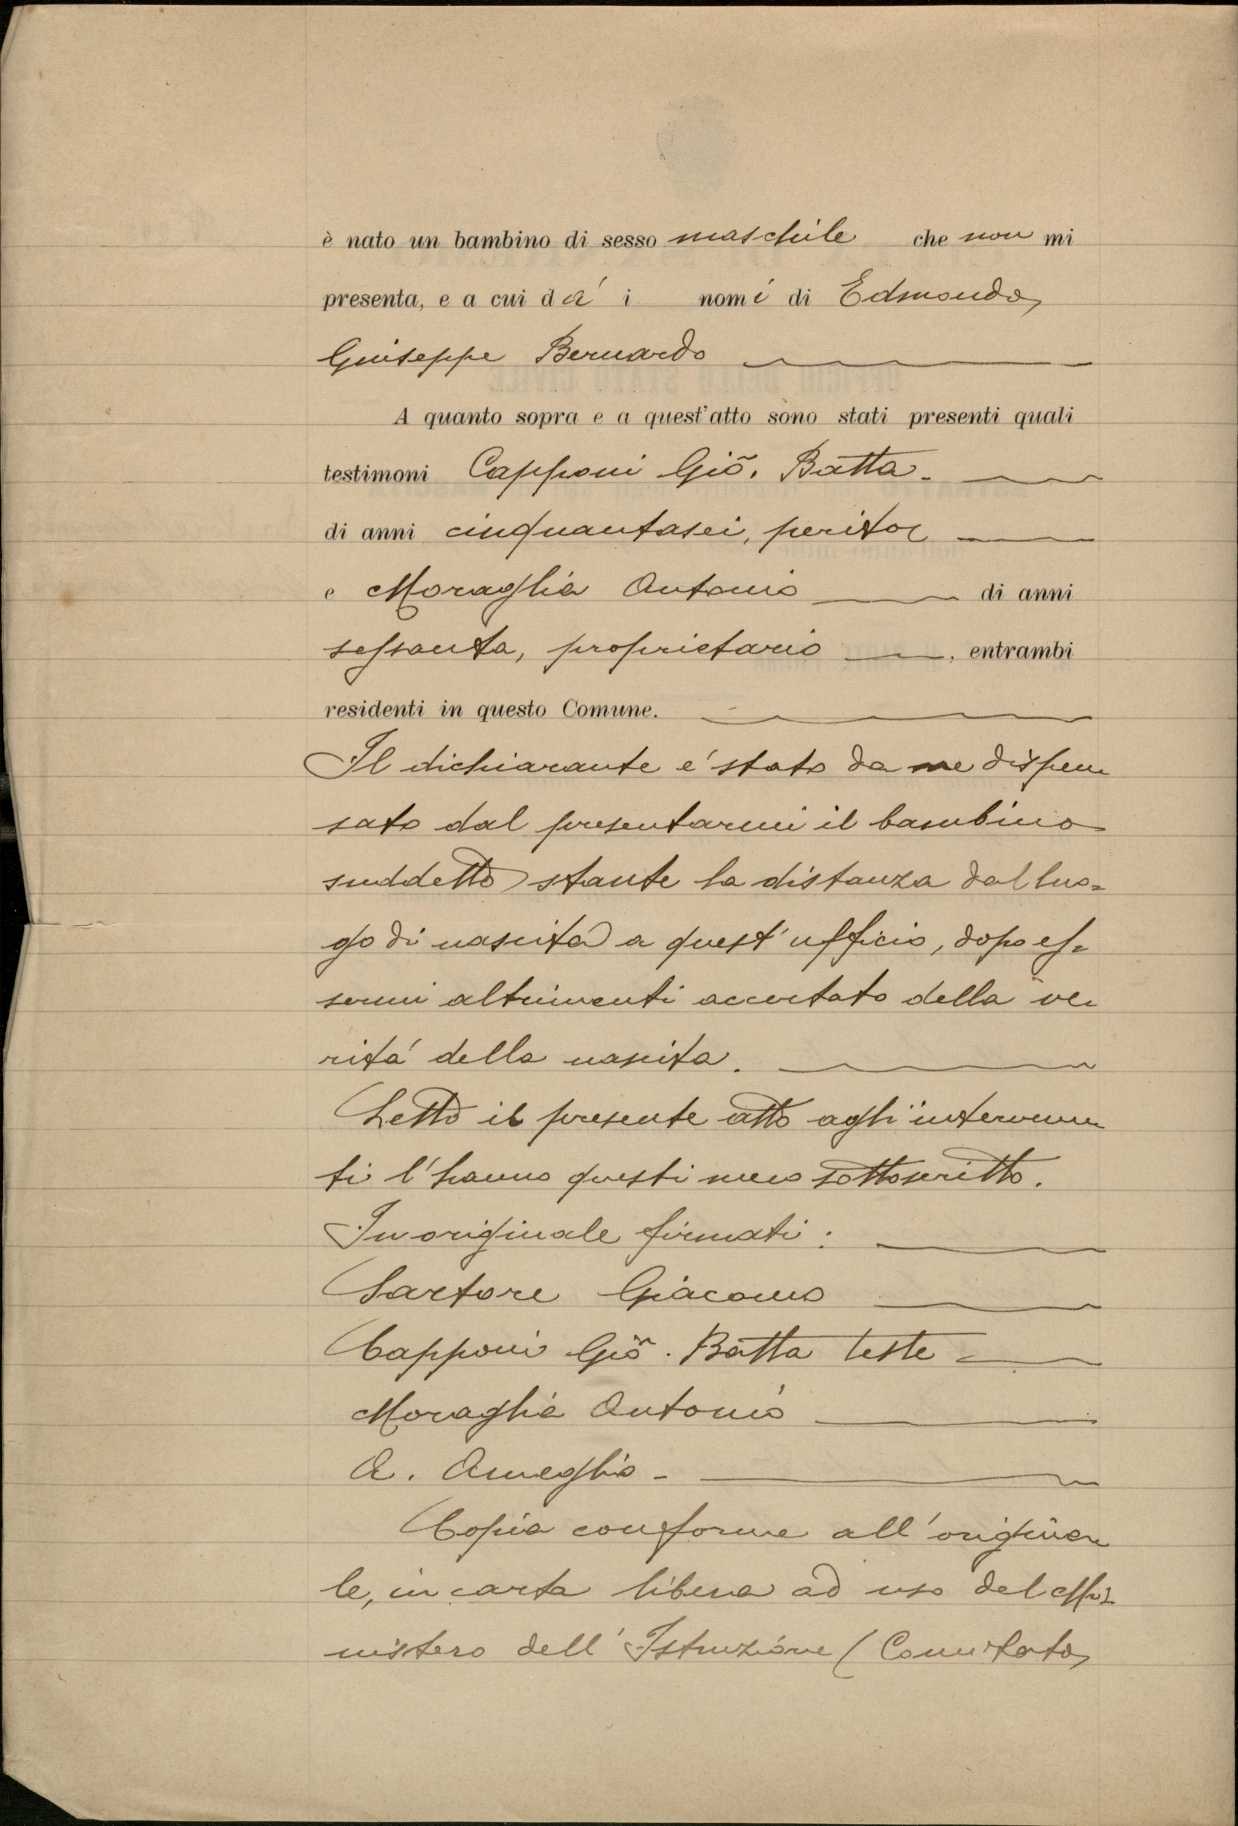 è nato un bambino di sesso maschile che non mi
presenta, e a cui dà i nomi di Edmondo,
Giuseppe Bernardo
A quanto sopra e a quest'atto sono stati presenti quali
testimoni Capponi Gio. Batta.
di anni cinquantasei, perito
e Moraglia Antonio di anni
sessanta, proprietario, entrambi
residenti in questo Comune.
Il dichiarante e' stato da me dispen
sato dal presentarmi il bambino
suddetto stante la distanza dal luo=
go di nascita a quest'ufficio, dopo es=
sermi altrimenti accertato della ve
rità della nascita.
Letto il presente atto agli intervenu
ti l'hanno questi meco sottoscritto.
In originale firmati:
Sartore Giacomo
Capponi Gio. Batta teste
Moraglia Antonio
A. Ameglio -
Copia conforme all'origina
le, in carta libera ad uso del Mi
nistero dell'Istruzione (Comitato